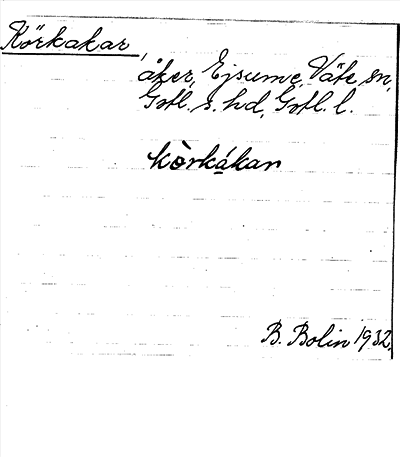 Körkakar,
åker, Ejsume, Väte sn,
Gotl. s. hd, Gotl. l.
kòrkákan
B. Bolin 1932.